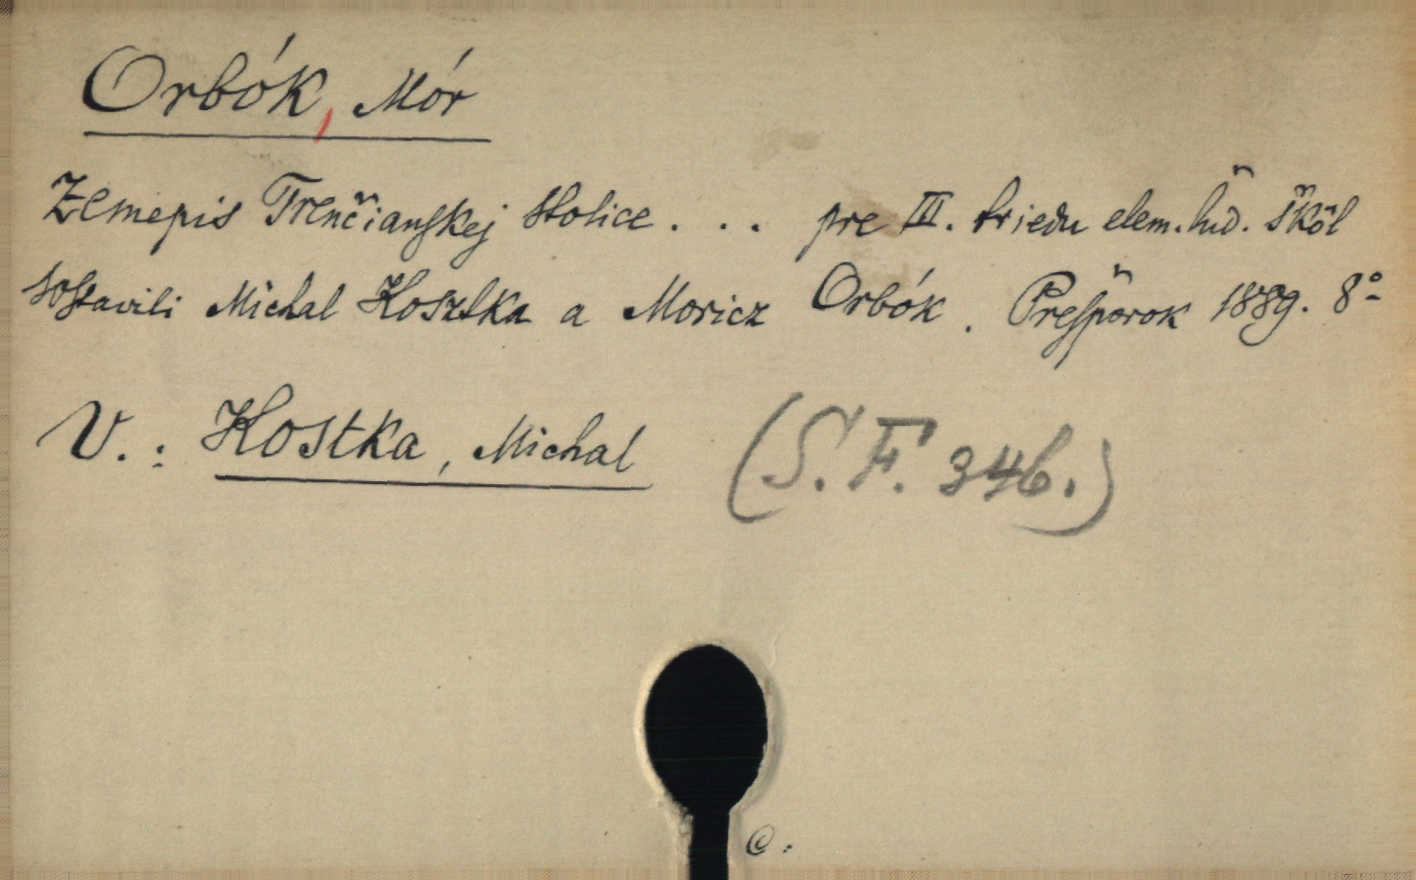 Orbók, Mór
Zemepis Trenčianskej stolice . . . pre III. triedu elem. lud. škôl
sostavili Michal Kosztka a Moricz Orbók. Prešporok 1889. 8°
V.: Kostka, Michal (S. F. 346.)
C.